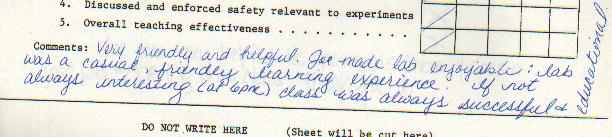 4. Discussed and enforced safety relevant to experiments
5. Overall teaching effectiveness . . . . . . . . . . .
Comments: Very friendly and helpful. Joe made lab enjoyable; lab
was a casual, friendly learning experience. If not
always interesting (at 6pm) class was always successful &
educational.
DO NOT WRITE HERE (Sheet will be cut here)